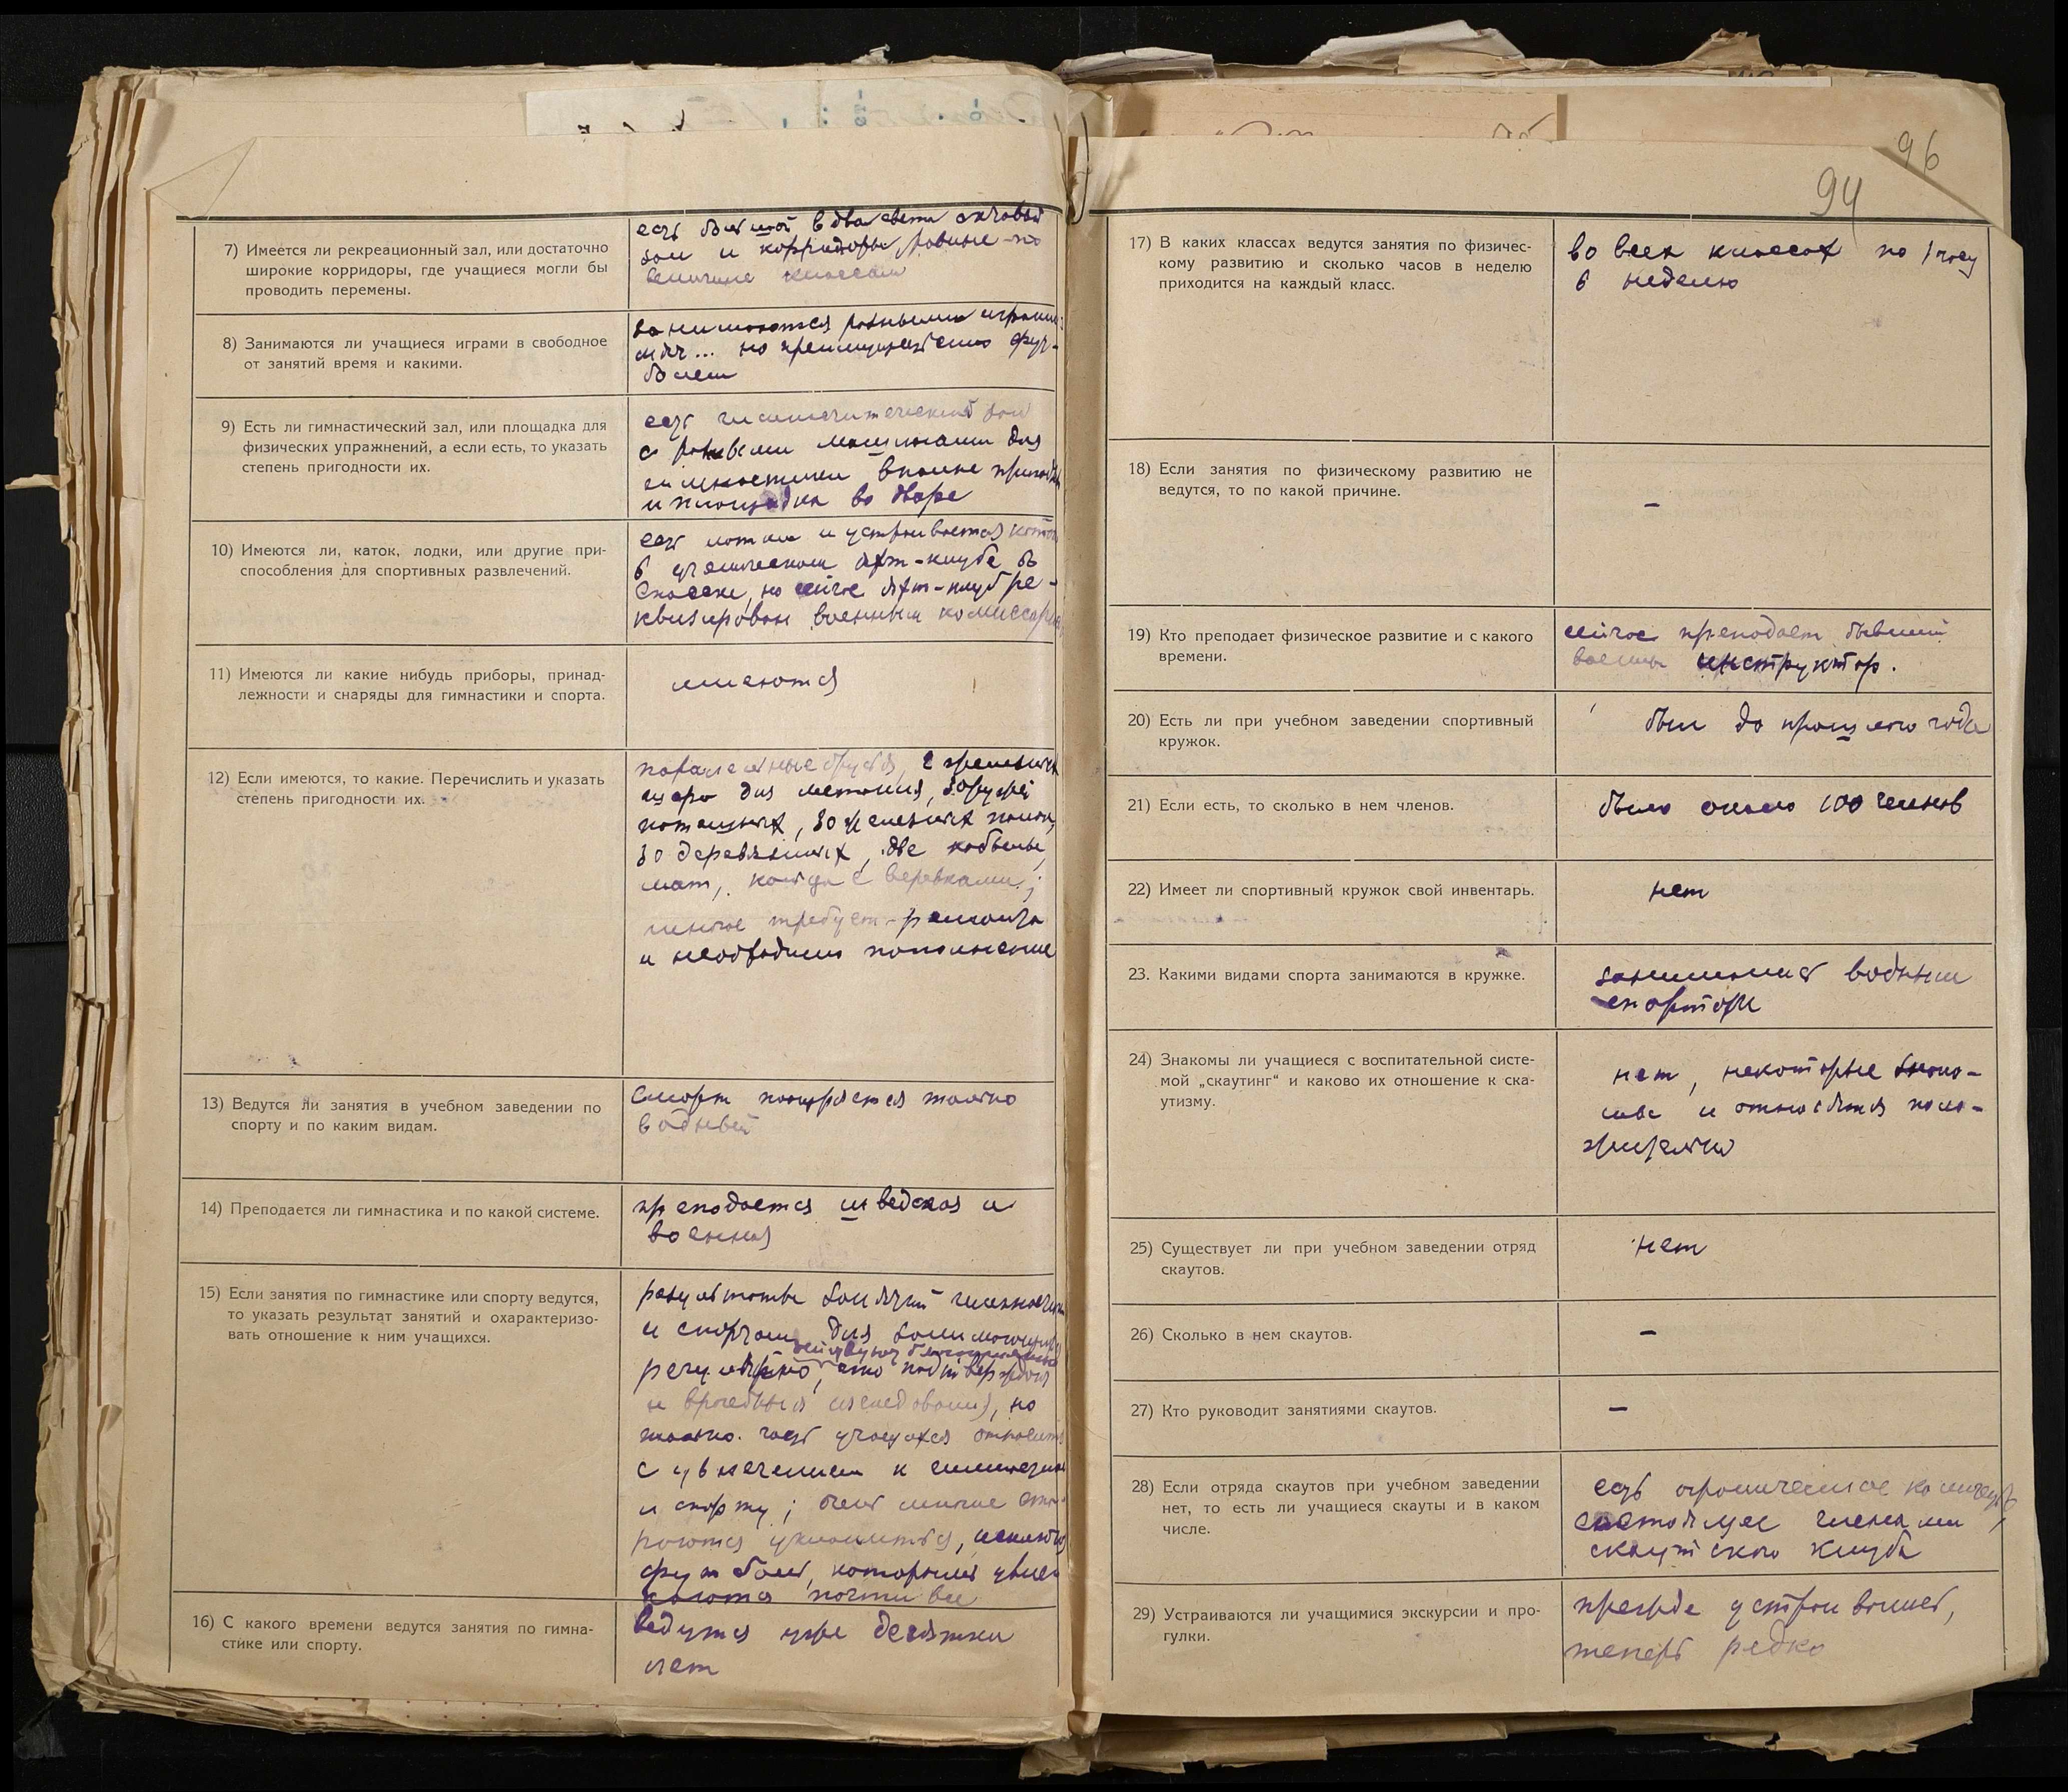 7) Имеется ли рекреационный зал, или достаточно
широкие корридоры, где учащиеся могли бы
проводить перемены.
есть большой в два света актовый
зал и корридоры, равные по
величине классам
8) Занимаются ли учащиеся играми в свободное
от занятий время и какими.
занимаются разными играми:
мяч... но преимущественно фут-
болем
9) Есть ли гимнастический зал, или площадка для
физических упражнений, а если есть, то указать
степень пригодности их.
есть гимнастический зал
с разными машинами для
гимнастики вполне пригодн
и площадка во дворе
10) Имеются ли, каток, лодки, или другие при-
способления для спортивных развлечений.
есть лодки и устраивается каток
в ученическом яхт-клубе в
но сейчас яхт-клуб ре-
квизирован военным комиссар
11) Имеются ли какие нибудь приборы, принад-
лежности и снаряды для гимнастики и спорта.
имеются
12) Если имеются, то какие. Перечислить и указать
степень пригодности их.
паралельные брусья, 2 железных
ядра для метания, 30 ружей
потешных, 30 железных палок,
30 деревянных, две кобылы,
мат, кольца с веревками;
многое требует ремонта
и необходимо пополнение
13) Ведутся ли занятия в учебном заведении по
спорту и по каким видам.
Спорт поощряется только
водный
14) Преподается ли гимнастика и по какой системе.
преподается шведская и
военная
15) Если занятия по гимнастике или спорту ведутся,
то указать результат занятий и охарактеризо-
вать отношение к ним учащихся.
результаты занятий гимнастик
и спортом для занимающихся
действуют благоприятно
регулярно, это подтверждают
и врачебные исследования, но
только часть учащихся относится
с увлечением к гимнастике
и спорту; очень многие ста-
раются уклониться, исключая
футбол, которым увле-
каются почти все
16) С какого времени ведутся занятия по гимна-
стике или спорту.
ведутся уже десятки
лет
96
94
17) В каких классах ведутся занятия по физичес-
кому развитию и сколько часов в неделю
приходится на каждый класс.
во всех классах по 1 часу
в неделю
18) Если занятия по физическому развитию не
ведутся, то по какой причине.
–
19) Кто преподает физическое развитие и с какого
времени.
сейчас преподает бывший
военный инструктор.
20) Есть ли при учебном заведении спортивный
кружок.
был до прошлого года
21) Если есть, то сколько в нем членов.
было около 100 членов
22) Имеет ли спортивный кружок свой инвентарь.
нет
23. Какими видами спорта занимаются в кружке.
занимались водным
спортом
24) Знакомы ли учащиеся с воспитательной систе-
мой „скаутинг“ и каково их отношение к ска-
утизму.
нет, некоторые знако-
мы и относятся поло-
жительно
25) Существует ли при учебном заведении отряд
скаутов.
нет
26) Сколько в нем скаутов.
–
27) Кто руководит занятиями скаутов.
–
28) Если отряда скаутов при учебном заведении
нет, то есть ли учащиеся скауты и в каком
числе.
есть ограниченное количество,
состоящее членами
скаутского клуба
29) Устраиваются ли учащимися экскурсии и про-
гулки.
прежде устраивались,
теперь редко